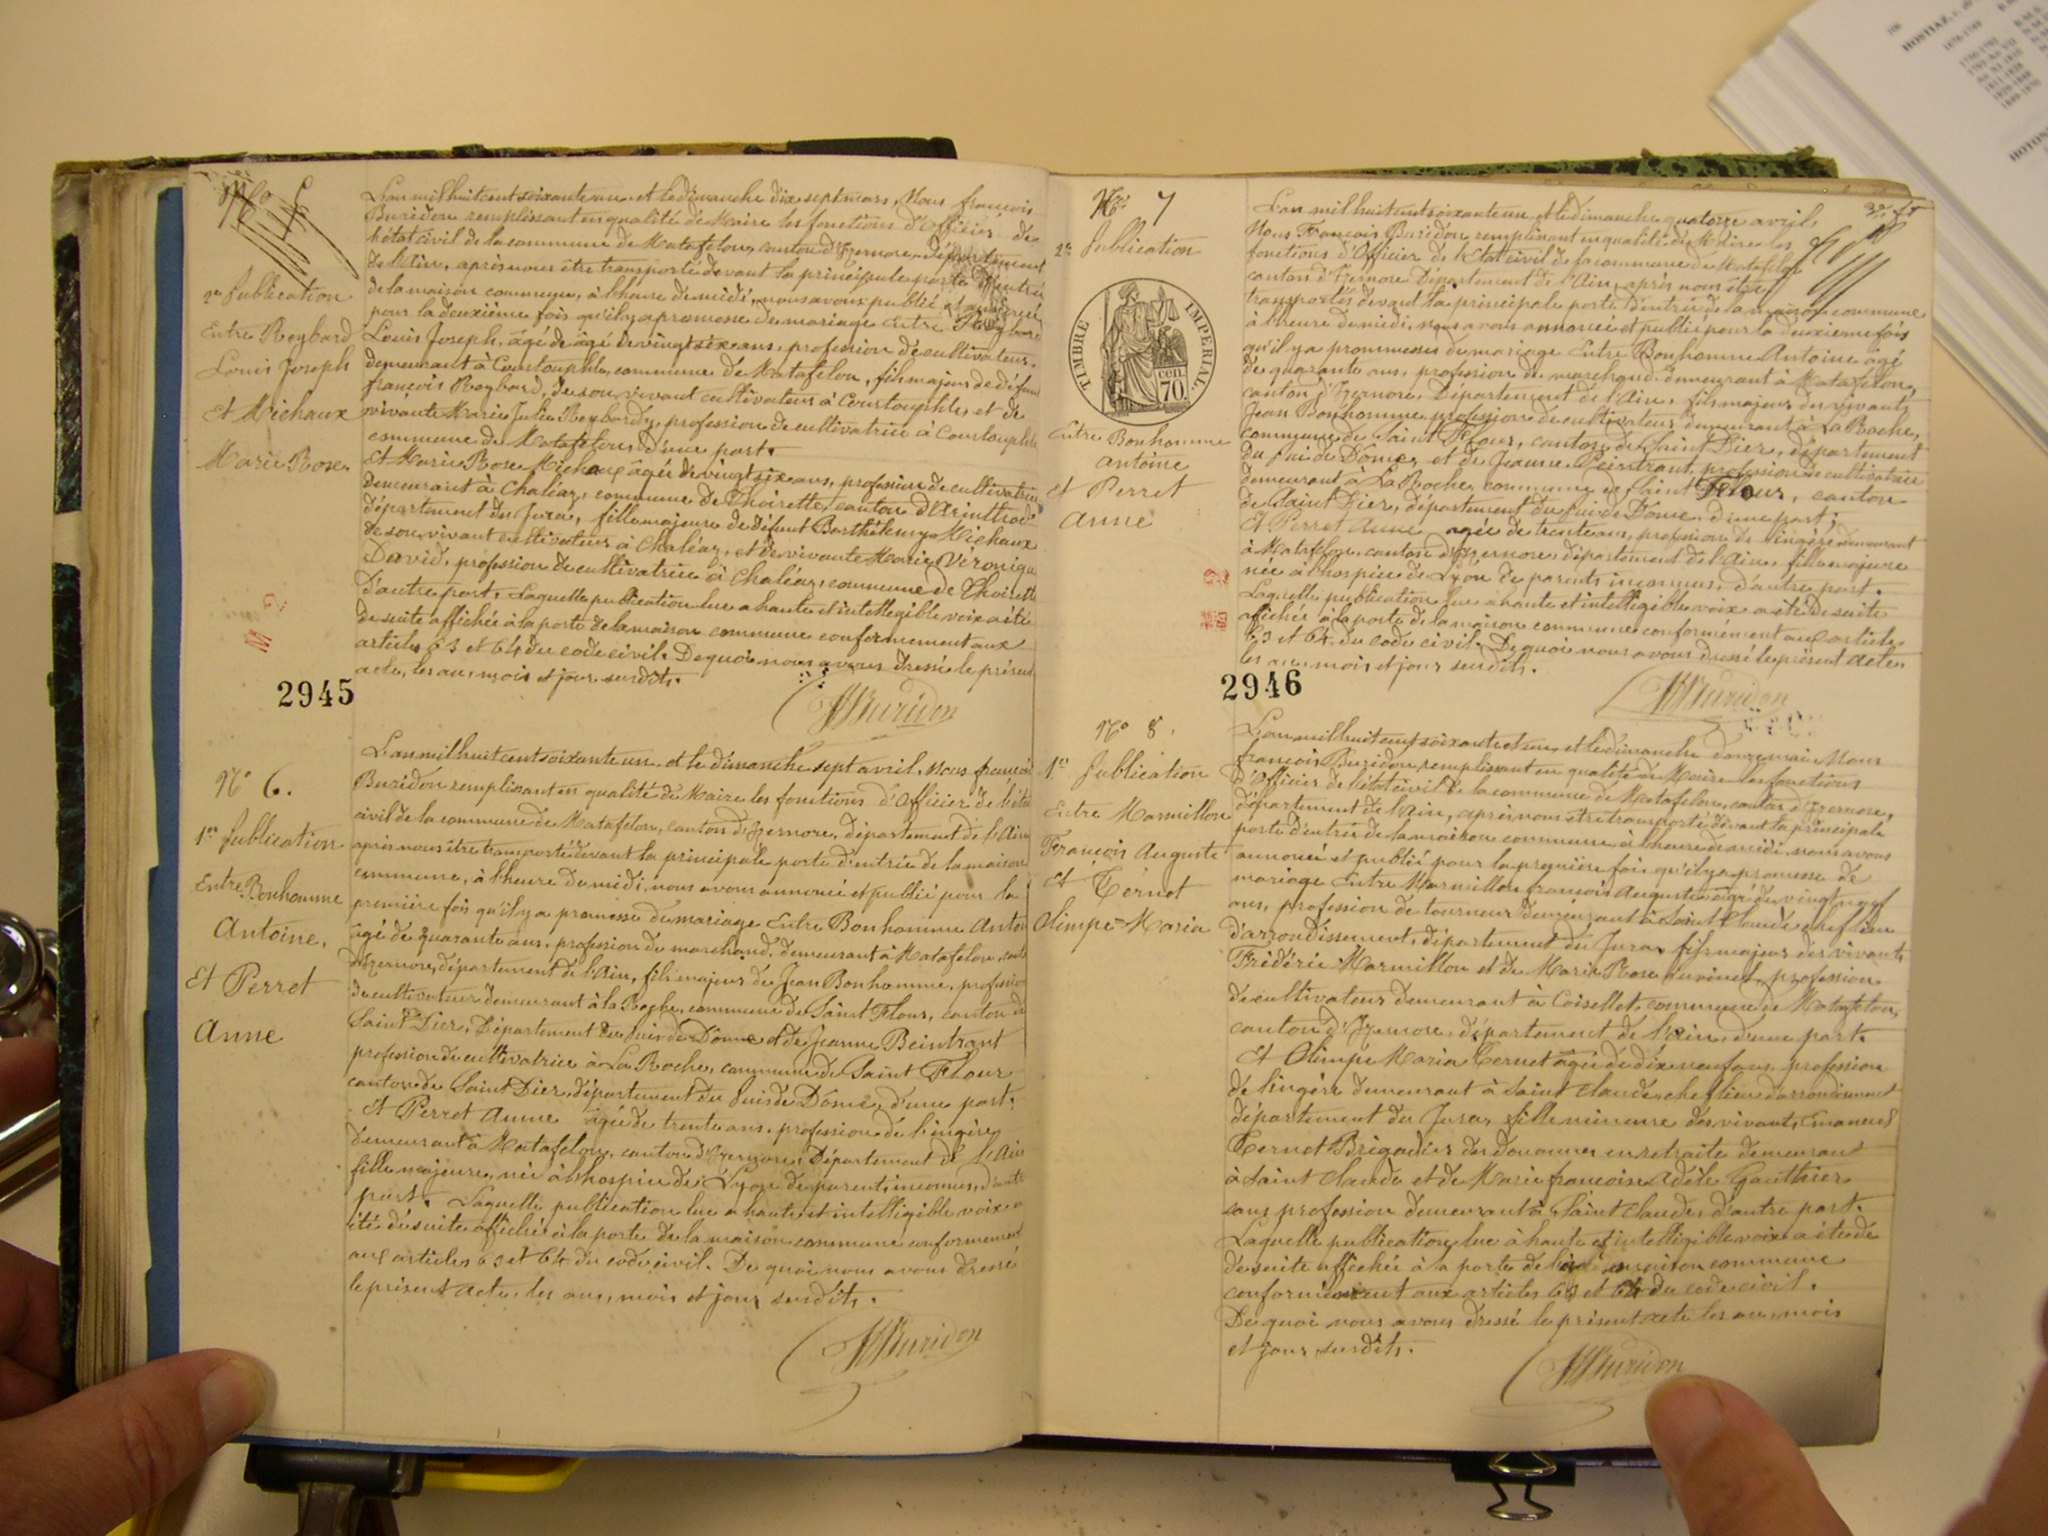 N° 5
2e Publication
Entre Reybard
Louis Joseph
Et Michaux
Marie Rose.
L'an mil huit cent soixante un et le dimanche dix sept mars, Nous françois
Buridon remplissant en qualité de Maire les fonctions d'officier de
l'état civil de la commune de Matafelon, canton d'Izernore, département
de l'Ain, après nous être transporté devant la principale porte d'entrée
de la maison commune, à l'heure de midi, nous avons publié et annoncé
pour la deuxième fois qu'il y a promesse de mariage Entre Reybard
Louis Joseph, âgé de âgé de vingt six ans, profession de cultivateur,
demeurant à Courtouphle, commune de Matafelon, fils majeur de défunt
françois Reybard, de son vivant cultivateur à Courtouphle, et de
vivante Marie Julie Reybard, profession de cultivatrice à Courtouphle
commune de Matafelon, d'une part.
Et Marie Rose Michaux âgée de vingt six ans, profession de cultivatrice
demeurant à Chaléaz, commune de Thoirette, canton d'Arinthod
département du Jura, fille majeure de défunt Barthélemy Michaux
de son vivant cultivateur à Chaléaz, et de vivante Marie Véronique
David, profession de cultivatrice à Chaléaz, commune de Thoirette
D'autre part. Laquelle publication lue a haute et intelligible voix a été
de suite affichée à la porte de la maison commune conformement aux
articles 63 et 64 du code civil. De quoi nous avons dressé le présent
acte, les an, mois et jour susdits.
2945
Buridon
N° 6.
1re Publication
Entre Bonhomme
Antoine,
Et Perret
Anne
L'an mil huit cent soixante un et le dimanche sept avril. Nous françois
Buridon remplissant en qualité de Maire les fonctions d'Officier de l'état
civil de la commune de Matafelon, canton d'Izernore, département de l'Ain
après nous être transporté devant la principale porte d'entrée de la maison
commune, à l'heure de midi, nous avons annoncé et publié pour la
première fois qu'il y a promesse de mariage Entre Bonhomme Antoine
âgé de quarante ans, profession de marchand, demeurant à Matafelon canton
d'Izernore, département de l'Ain, fils majeur de Jean Bonhomme, profession
de cultivateur demeurant à la Roche, commune de Saint Flour, canton de
Saint Dier, Département du Puis de Dôme et de Jeanne Beintrant
profession de cultivatrice à La Roche, commune de Saint Flour
canton de Saint Dier, département du Puis de Dôme, d'une part.
Et Perret Anne âgée de trente ans, profession de lingère
demeurant à Matafelon, canton d'Izernore, Département de l'Ain
fille majeure, née à l'hospice de Lyon de parents inconnus, d'autre
part. Laquelle publication lue a haute et intelligible voix a
été de suite affichée à la porte de la maison commune conformement
aux articles 63 et 64 du code civil. De quoi nous avons dressé
le présent acte, les an, mois et jour susdits.
Buridon
N° 7
2e Publication
TIMBRE IMPERIAL
70 cen
Entre Bonhomme
Antoine
Et Perret
Anne
L'an mil huit cent soixante un et le dimanche quatorze avril,
Nous François Buridon remplissant en qualité de Maire les
fonctions d'Officier de l'Etat civil de la commune de Matafelon
canton d'Izernore Département de l'Ain, après nous être
transportés devant la principale porte d'entrée de la maison commune
à l'heure de midi, nous avons annoncé et publié pour la deuxieme fois
qu'il y a prommesse de mariage Entre Bonhomme Antoine âgé
de quarante ans, profession de marchand demeurant à Matafelon,
canton d'Izernore, Département de l'Ain, fils majeur des vivants
Jean Bonhomme profession de cultivateur demeurant à La Roche,
commune de Saint Flour, canton de Saint Dier, département
du Puis de Dôme, et de Jeanne Beintrant, profession de cultivatrice
demeurant à La Roche, commune de Saint Flour, canton
de Saint Dier, département du Puis de Dôme, d'une part;
Et Perret Anne agée de trente ans, profession de lingère demeurant
à Matafelon, canton d'Izernore, département de l'Ain, fille majeure
née à l'hospice de Lyon de parents inconnus, d'autre part.
Laquelle publication lue à haute et intelligible voix a été de suite
affichée à la porte de la maison commune conformément aux articles
63 et 64 du code civil. De quoi nous avons dressé le présent acte
les an, mois et jour susdits.
2946
Buridon
N° 8.
1re Publication
Entre Marmillon
François Auguste
Et Ternet
Olimpe=Maria
L'an mil huit cent soixante et un et le dimanche douze mai Nous
françois Buridon remplissant en qualité de Maire les fonctions
d'Officier de l'état civil de la commune de Matafelon, canton d'Izernore,
département de l'Ain, après nous être transporté devant la principale
porte d'entrée de la maison commune, à l'heure de midi nous avons
annoncé et publié pour la première fois qu'il y a promesse de
mariage Entre Marmillon françois Auguste âgé de vingt neuf
ans, profession de tourneur demeurant à Saint Claude chef lieu
d'arrondissement, département du Jura, fils majeur des vivants
Frédéric Marmillon et de Marie Rose profession
de cultivateurs demeurant à Coisellet, commune de Matafelon,
canton d'Izernore, département de l'Ain, d'une part.
Et Olimpe Maria Ternet âgée de dix neuf ans, profession
de lingère demeurant à Saint Claude, chef lieu d'arrondissement
département du Jura, fille mineure des vivants Emanuel
Ternet Brigadier des Douannes en retraite demeurant
à Saint Claude et de Marie françoise Adèle Gauthier
sans profession demeurant à Saint Claude, d'autre part.
Laquelle publication, lue à haute et intelligible voix a été de
de suite affichée à la porte de la maison commune
conformément aux articles 63 et 64 du code civil.
De quoi nous avons dressé le présent acte les an, mois
et jour susdits.
Buridon
HOSTIAZ